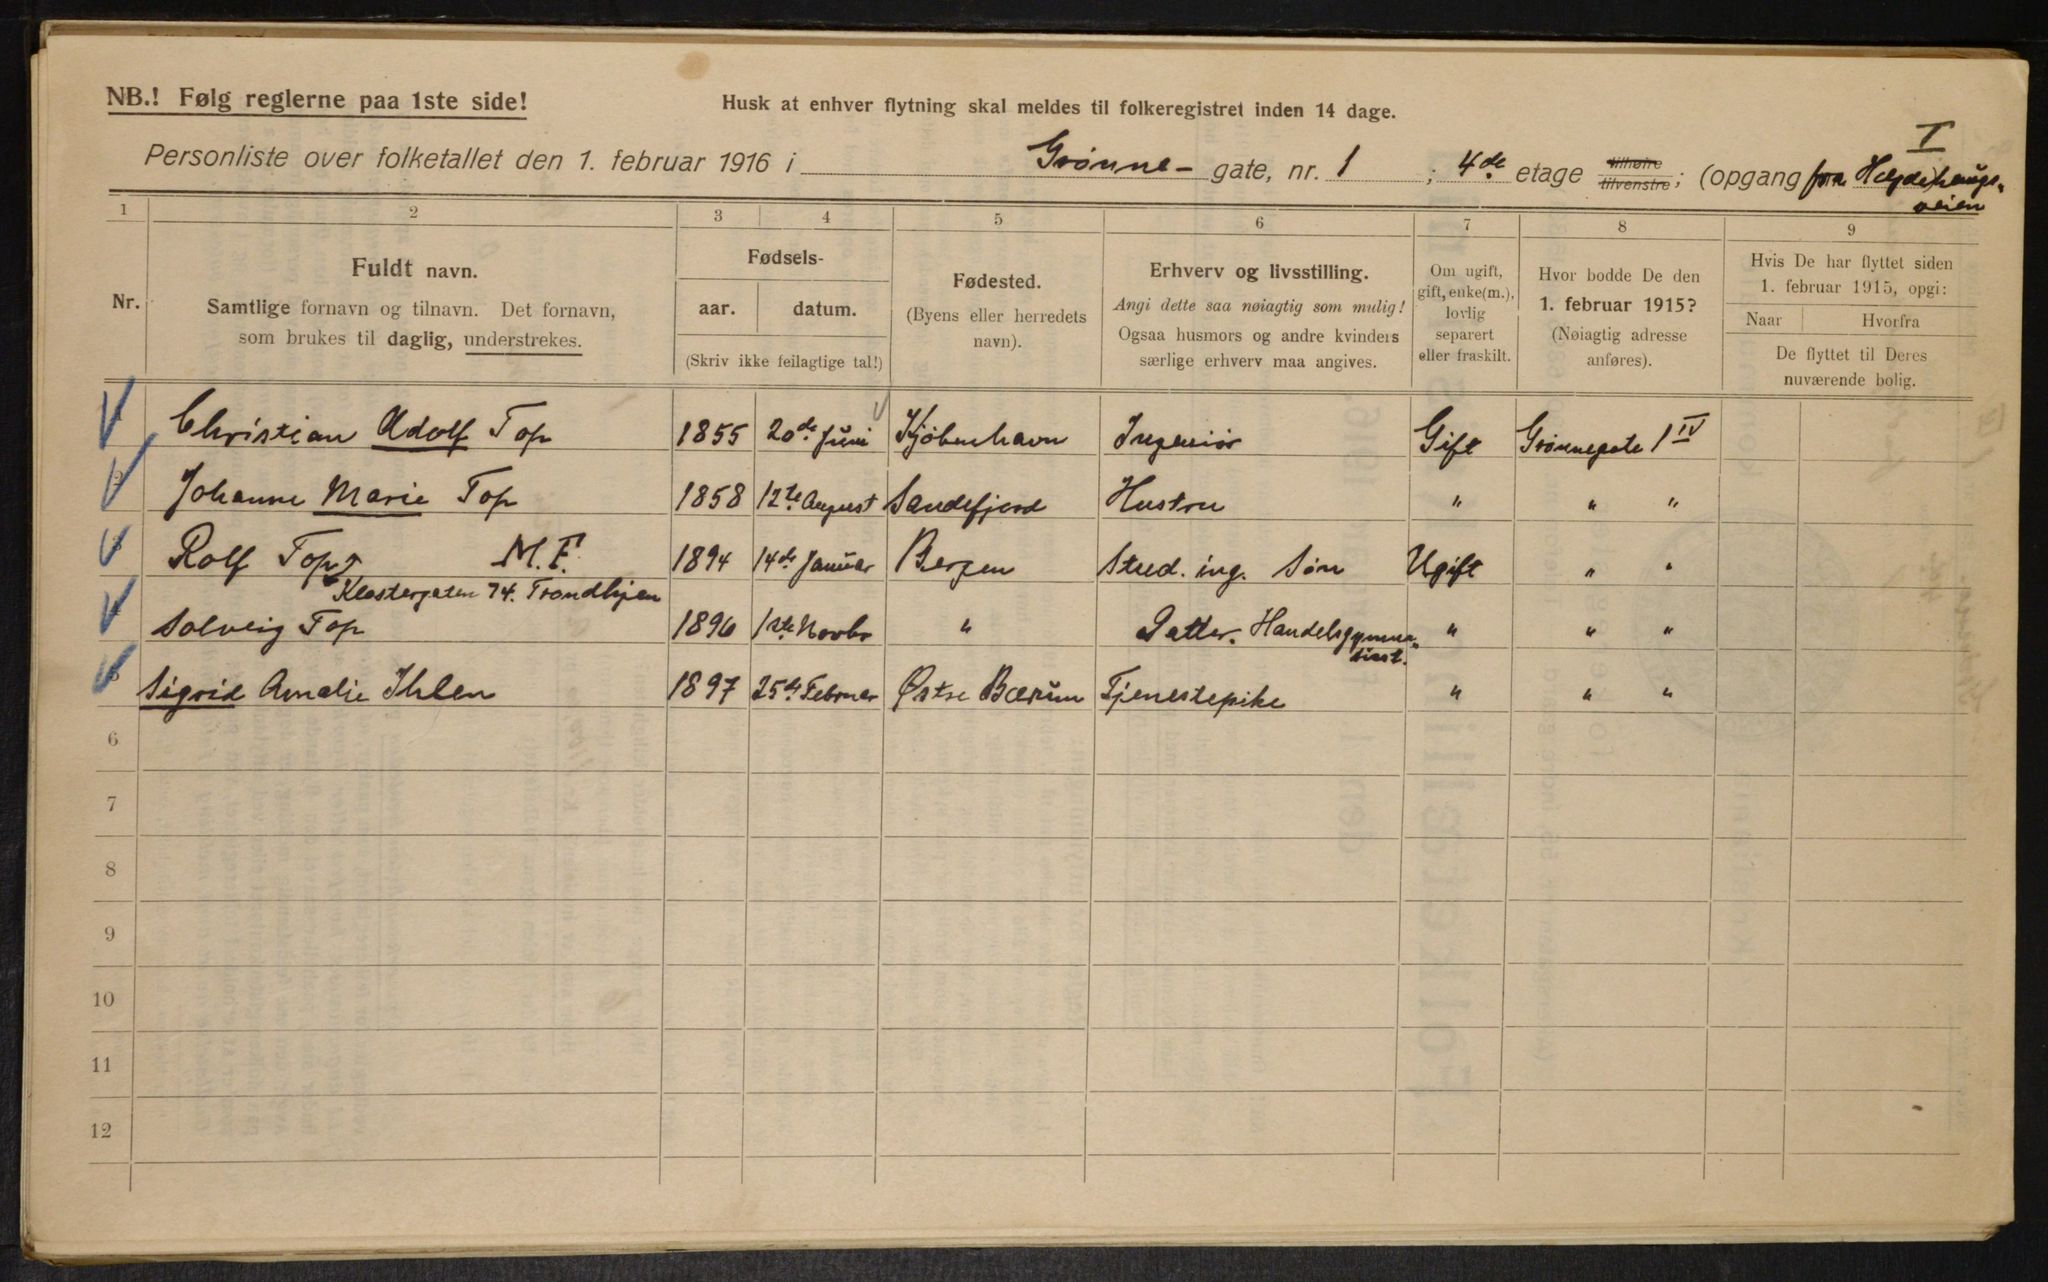 NB.! Følg reglerne paa 1ste side!
Husk at enhver flytning skal meldes til folkeregistret inden 14 dage.
I
Personliste over folketallet den 1. februar 1916 i Grønne- gate, nr. 1 ; 4de etage tilhøire tilvenstre; (opgang fra Hegdehaugs-
veien
1 2 3 4 5 6 7 8 9
Nr.
Fuldt navn.
Samtlige fornavn og tilnavn. Det fornavn,
som brukes til daglig, understrekes.
Fødsels-
aar. datum.
(Skriv ikke feilagtige tal!)
Fødested.
(Byens eller herredets
navn).
Erhverv og livsstilling.
Angi dette saa nøiagtig som mulig!
Ogsaa husmors og andre kvinders
særlige erhverv maa angives.
Om ugift,
gift, enke(m.),
lovlig
separert
eller fraskilt.
Hvor bodde De den
1. februar 1915?
(Nøiagtig adresse
anføres).
Hvis De har flyttet siden
1. februar 1915, opgi:
Naar Hvorfra
De flyttet til Deres
nuværende bolig.
1 Christian Adolf Top 1855 20de Juni Kjøbenhavn Ingeniør Gift Grønnegate 1 IV
2 Johanne Marie Top 1858 12te August Sandefjord Hustru " " "
3 Rolf Top M.F. 1894 14de Januar Bergen Stud. ing. Søn Ugift " "
Klostergaten 74. Trondhjem
4 Solveig Top 1896 1ste Novbr " Datter. Handelsgymna- " " "
siast.
5 Sigrid Amalie Ihlen 1897 25de Februar Østre Bærum Tjenestepike " " "
6
7
8
9
10
11
12